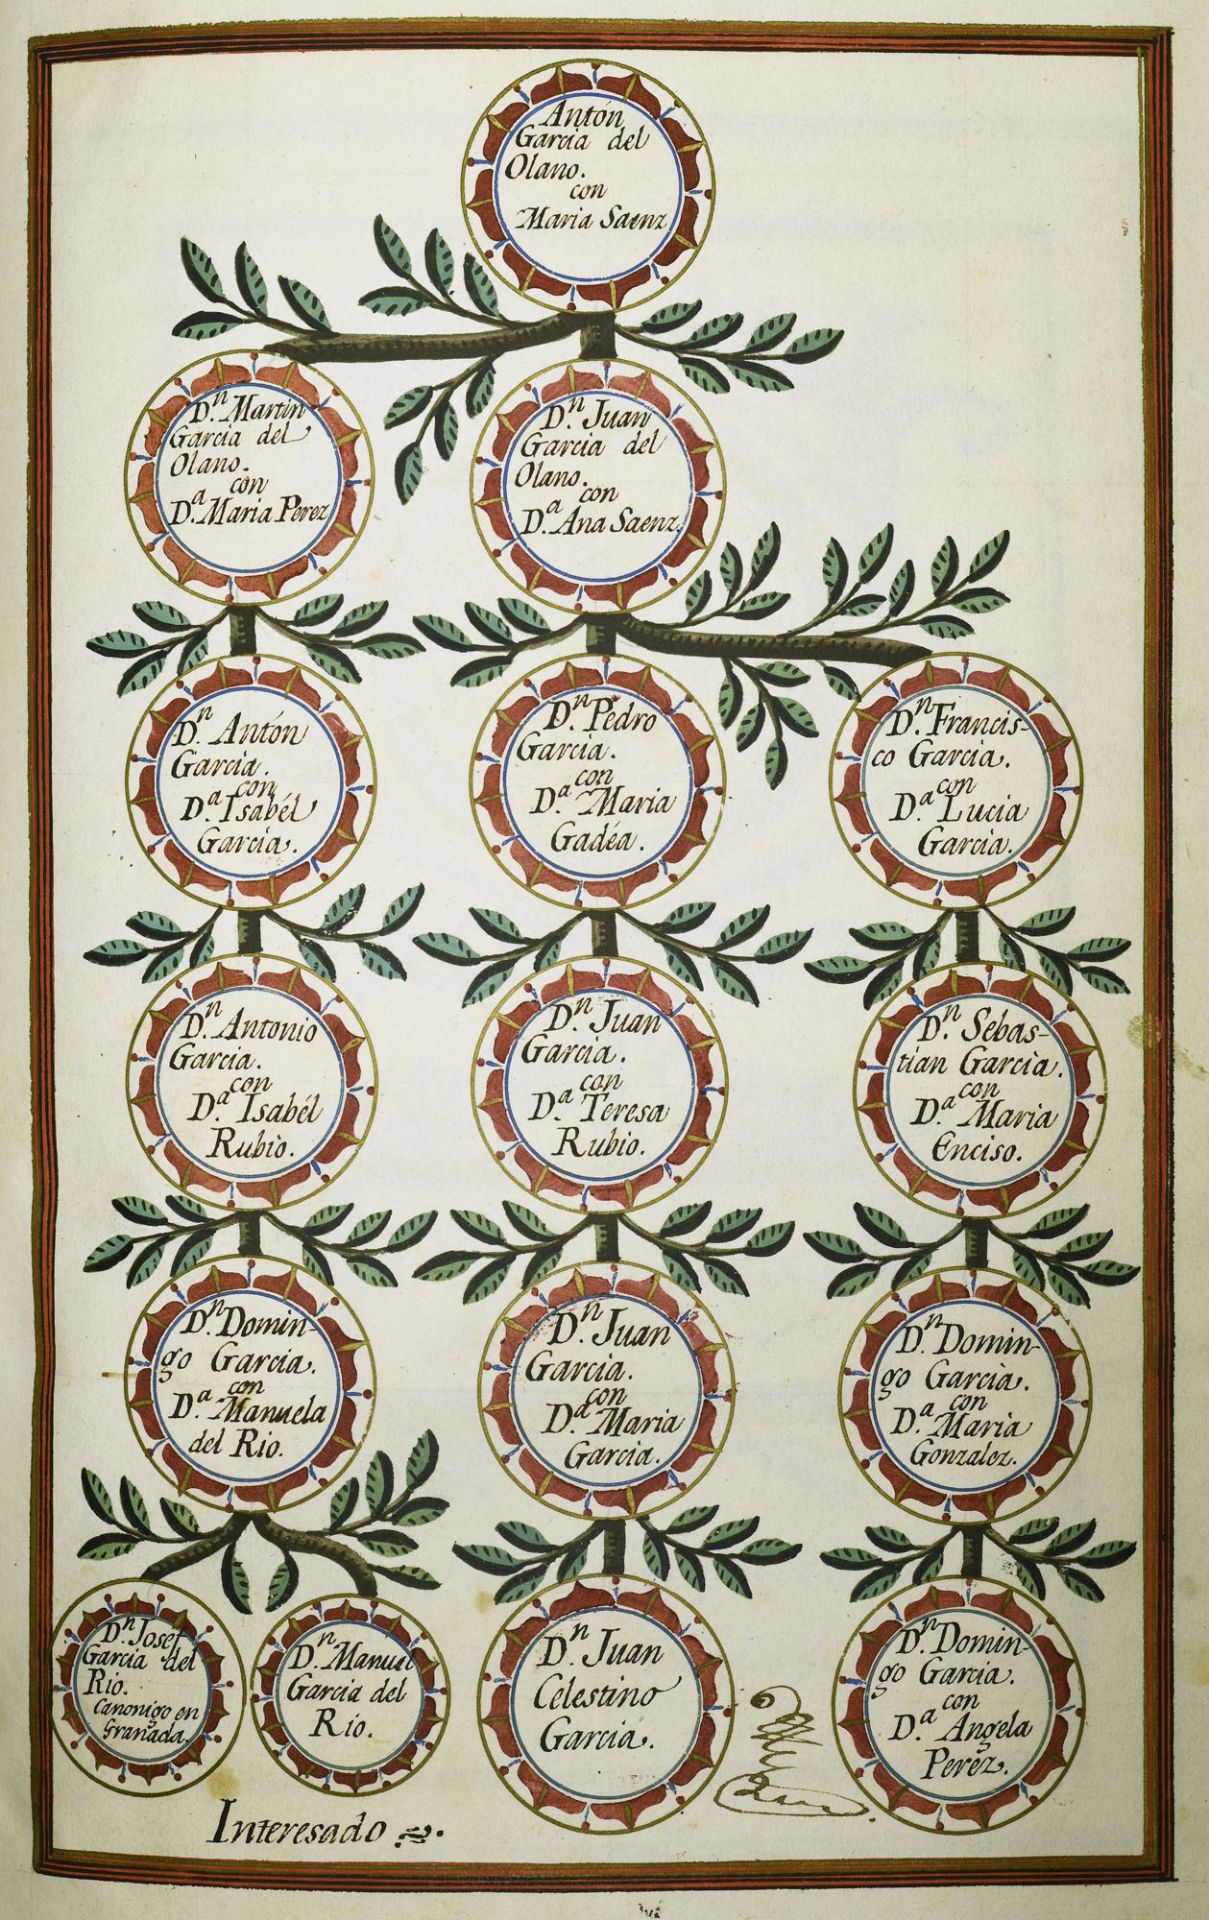 Antón
Garcia del
Olano.
con
Maria Saenz
Dⁿ. Martin
Garcia del
Olano.
con
Dª. Maria Perez
Dⁿ. Juan
Garcia del
Olano.
con
Dª. Ana Saenz.
Dⁿ. Antón
Garcia.
con
Dª. Isabél
Garcia.
Dⁿ. Pedro
Garcia.
con
Dª. Maria
Gadéa.
Dⁿ. Francis-
co Garcia.
con
Dª. Lucia
Garcia.
Dⁿ. Antonio
Garcia.
con
Dª. Isabél
Rubio.
Dⁿ. Juan
Garcia.
con
Dª. Teresa
Rubio.
Dⁿ. Sebas-
tian Garcia.
con
Dª. Maria
Enciso.
Dⁿ. Domin-
go Garcia.
con
Dª. Manuela
del Rio.
Dⁿ. Juan
Garcia.
con
Dª. Maria
Garcia.
Dⁿ. Domin-
go Garcia.
con
Dª. Maria
Gonzalez.
Dⁿ. Josef
Garcia del
Rio.
Canonigo en
Granada.
Dⁿ. Manuel
Garcia del
Rio.
Dⁿ. Juan
Celestino
Garcia.
Dⁿ. Domin-
go Garcia.
con
Dª. Angela
Perez.
Interesado